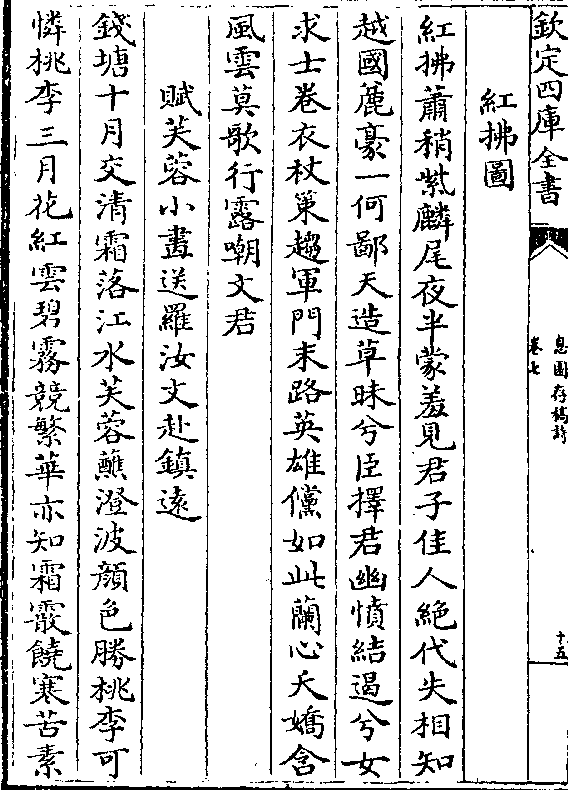 欽定四庫全書
息園存稿詩
卷七
十五
紅拂圖
紅拂蕭稍紫麟尾夜半蒙羞見君子佳人絶代失相知
越國麄豪一何鄙天造草昧兮臣擇君幽憤結遏兮女
求士卷衣杖策趨軍門末路英雄儻如此蘭心夭嬌含
風雲莫歌行露嘲文君
賦芙蓉小畫送羅汝文赴鎮遠
錢塘十月交清霜落江水芙蓉蘸澄波顔色勝桃李可
憐桃李三月花紅雲碧霧競繁華亦知霜霰饒寒苦素